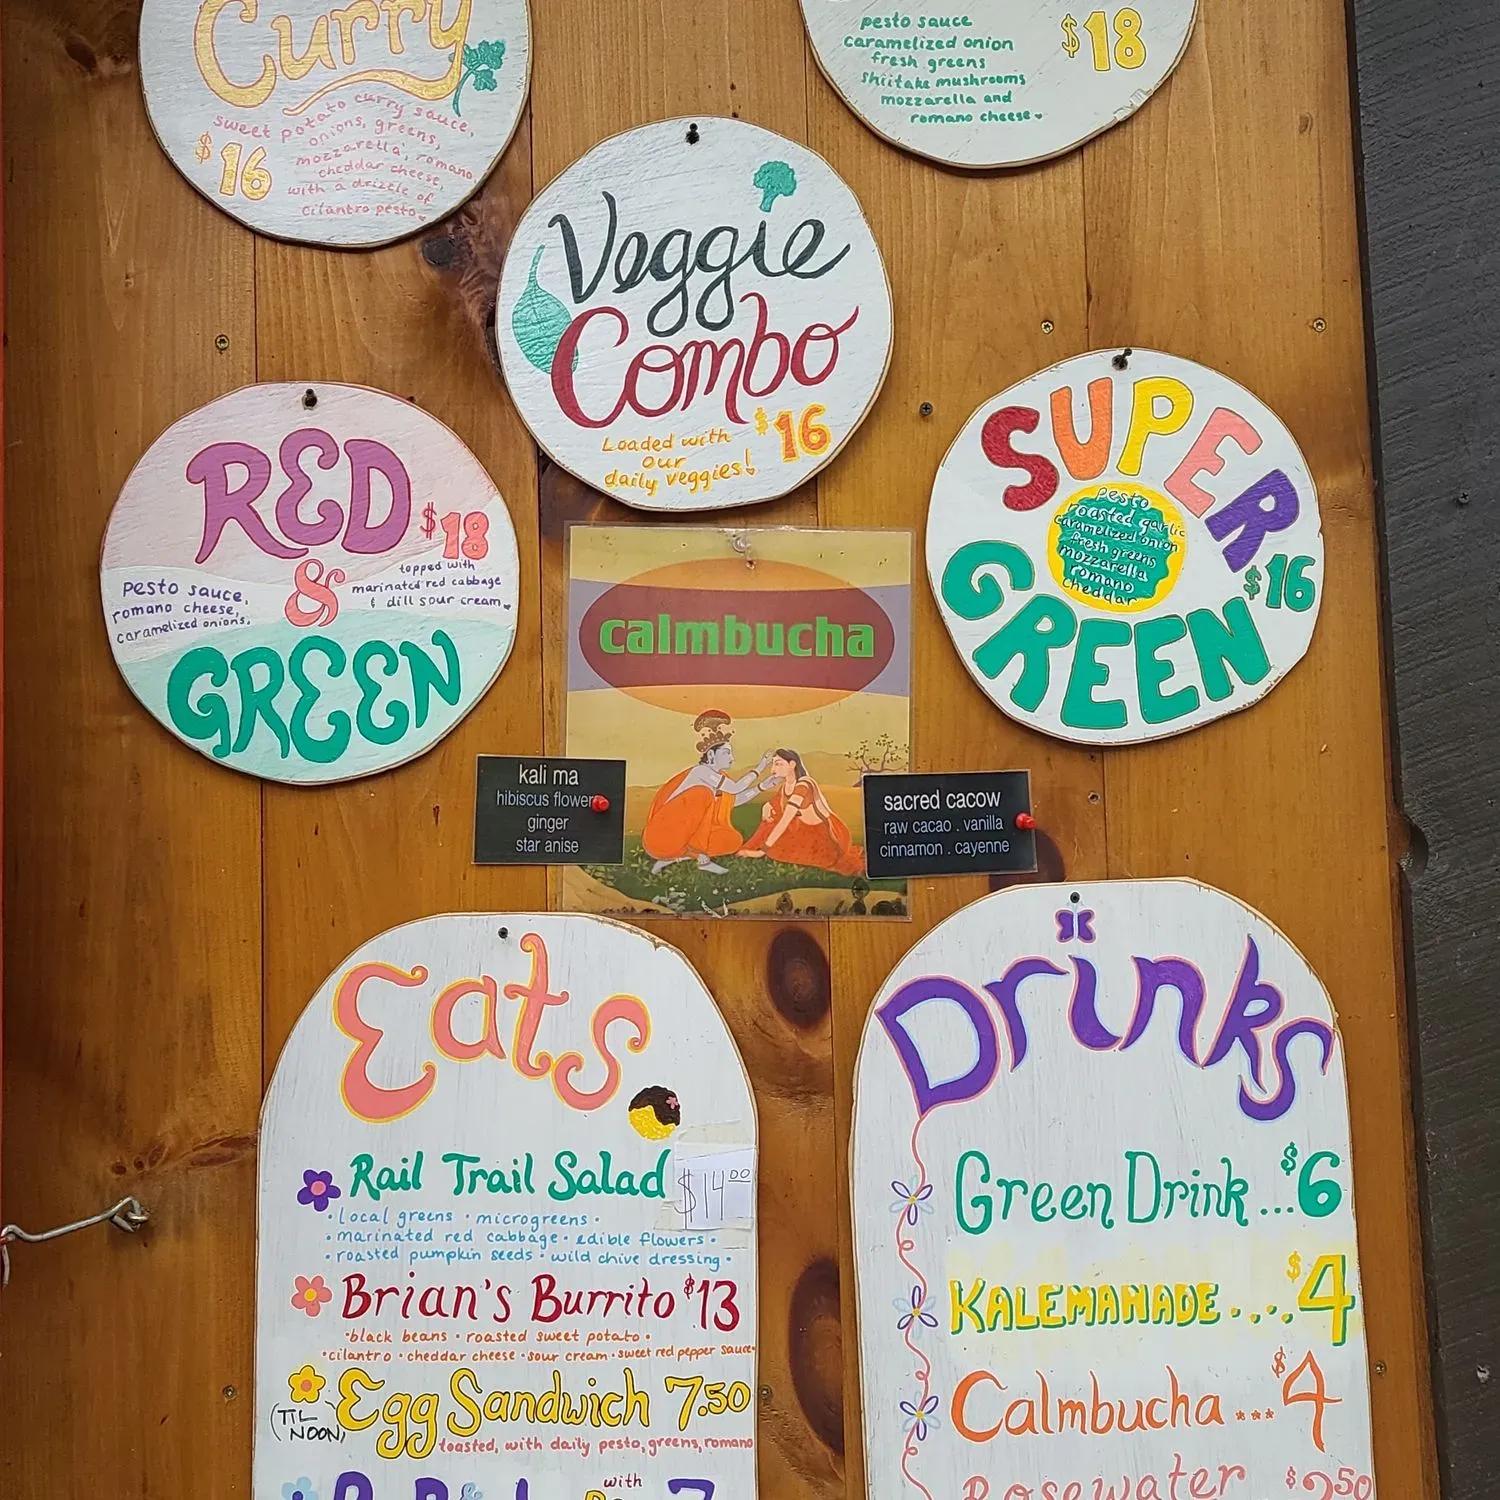 Curry
sweet potato curry sauce,
onions, greens,
mozzarella, romano
cheddar cheese,
with a drizzle of
cilantro pesto
$16
pesto sauce
caramelized onion
fresh greens
shiitake mushrooms
mozzarella and
romano cheese
$18
Veggie
Combo
Loaded with
our
daily veggies!
$16
RED
&
GREEN
$18
pesto sauce,
romano cheese,
caramelized onions,
topped with
marinated red cabbage
& dill sour cream
SUPER
GREEN
pesto
roasted garlic
caramelized onion
fresh greens
mozzarella
romano
cheddar
$16
calmbucha
kali ma
hibiscus flower
ginger
star anise
sacred cacow
raw cacao . vanilla
cinnamon . cayenne
Eats
Rail Trail Salad $14.00
• local greens • microgreens •
• marinated red cabbage • edible flowers •
• roasted pumpkin seeds • wild chive dressing •
Brian's Burrito $13
• black beans • roasted sweet potato •
• cilantro • cheddar cheese • sour cream • sweet red pepper sauce •
(TIL NOON) Egg Sandwich 7.50
toasted, with daily pesto, greens, romano
with
7
Drinks
Green Drink...$6
KALEMANADE....$4
Calmbucha...$4
Rosewater $2.50